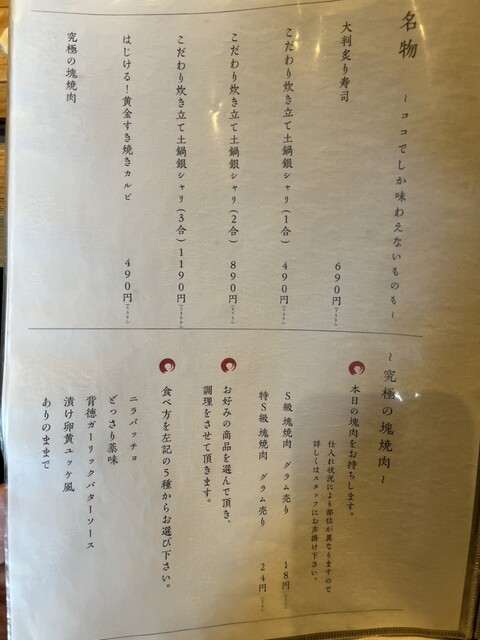 名物 ~ココでしか味わえないものも~
大判炙り寿司 690円
こだわり炊き立て土鍋銀シャリ(1合) 490円
こだわり炊き立て土鍋銀シャリ(2合) 890円
こだわり炊き立て土鍋銀シャリ(3合) 1190円
はじける!黄金すき焼きカルビ 490円
究極の塊焼肉
~究極の塊焼肉~
本日の塊肉をお持ちします。
仕入れ状況により部位が異なりますので
詳しくはスタッフにお声掛け下さい。
S級 塊焼肉 グラム売り 18円
特S級 塊焼肉 グラム売り 24円
お好みの商品を選んで頂き、
調理をさせて頂きます。
食べ方を左記の5種からお選び下さい。
ニラパッチョ
どっさり薬味
背徳ガーリックバターソース
漬け卵黄ユッケ風
ありのままで